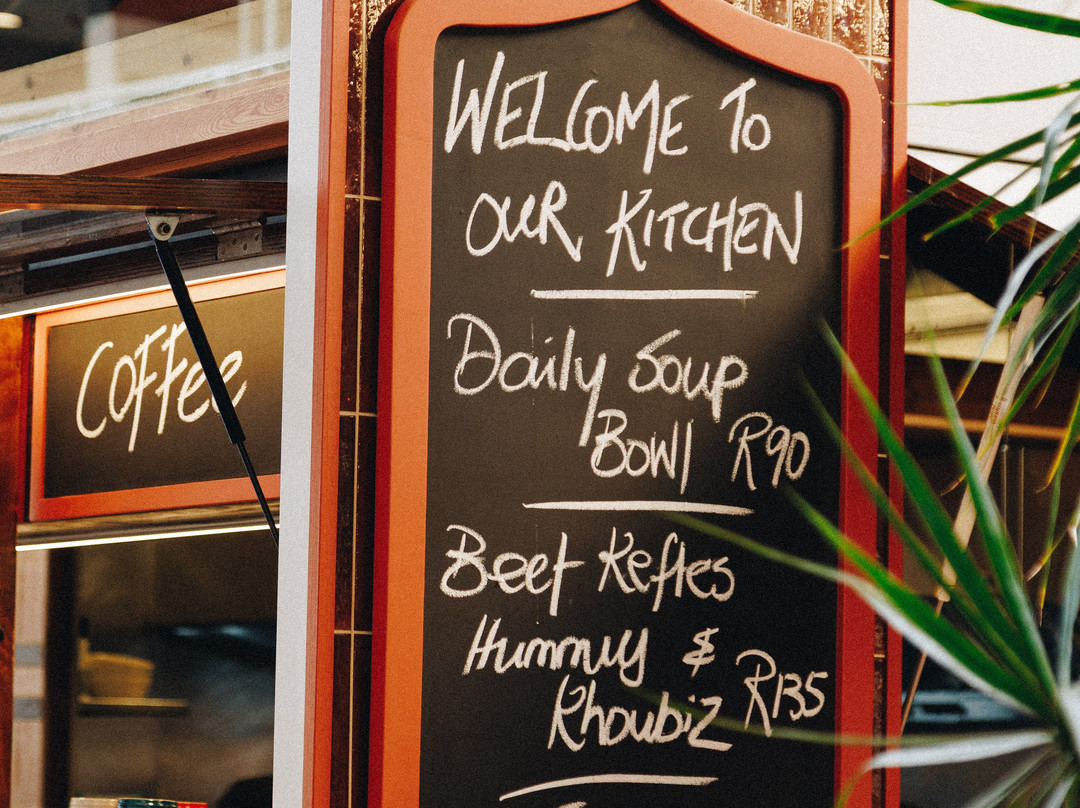 WELCOME To
OUR KITCHEN
Daily Soup
Bowl R90
Beef Keftes
Hummus &
Khoubiz R135
Coffee